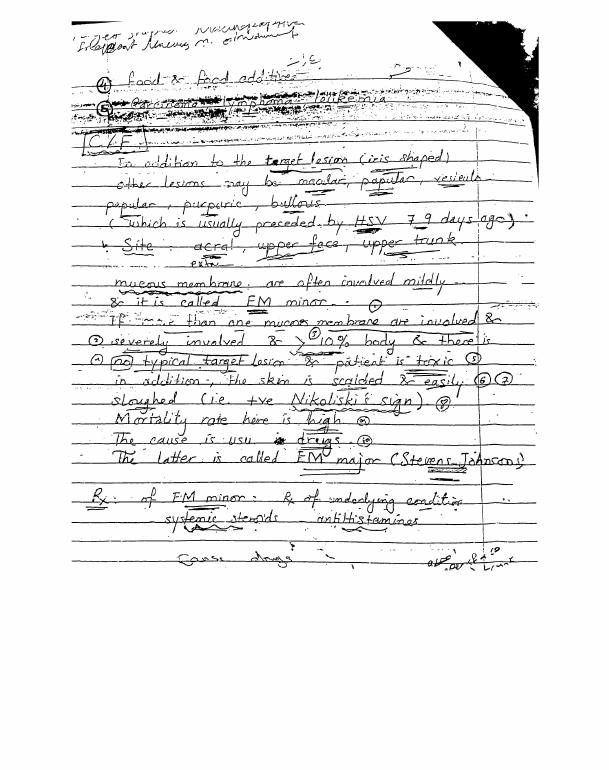 ④ Food & food additives
⑤ Carcinoma lymphoma leukemia
C/F
In addition to the target lesion (iris shaped)
other lesions may be macular, papular, vesiculo
popular, purpuric, bullous
(which is usually preceded by HSV 7 9 days ago).
Site: acral, upper face, upper trunk
exte
mucous membrane. are often involved mildly
& it is called EM minor.. ①
If more than one mucous membrane are involved &
② severely involved & ③ > 10% body & there is
④ no typical target lesion & patient is toxic ⑤
in addition, the skin is scalded & easily ⑥ ⑦
sloughed (i.e. +ve Nikoliski's sign) ⑧
Mortality rate here is high ⑨
The cause is usu drugs ⑩
The latter is called EM major (Stevens_Johnsons)
Rx: of EM minor: Rx of underlying condition
systemic steroids antihistamines
Cause drugs